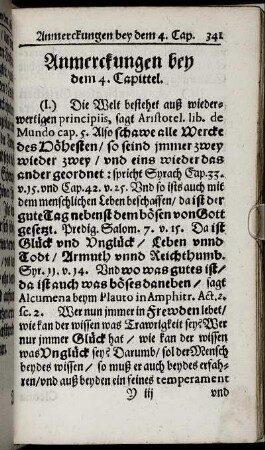 Anmerckungen bey dem 4. Cap. 341
Anmerckungen bey
dem 4. Capittel.
(I.) Die Welt bestehet auß wieder-
wertigen principiis, sagt Aristotel. lib. de
Mundo cap. 5. Also schawe alle Wercke
des Höhesten/ so seind jmmer zwey
wieder zwey/ vnd eins wieder das
ander geordnet: spricht Syrach Cap. 33.
v. 15. vnd Cap. 42. v. 25. Vnd so ists auch mit
dem menschlichen Leben beschaffen/ da ist der
gute Tag nebenst dem bösen von Gott
gesetzt. Predig. Salom. 7. v. 15. Da ist
Glück vnd Vnglück/ Leben vnnd
Todt/ Armuth vnnd Reichthumb.
Syr. 11. v. 14. Vnd wo was gutes ist/
da ist auch was böses daneben/ sagt
Alcumena beym Plauto in Amphitr. Act. 2.
sc. 2. Wer nun jmmer in Frewden lebet/
wie kan der wissen was Trawrigkeit sey? Wer
nur jmmer Glück hat/ wie kan der wissen
was Vnglück sey? Darumb/ sol der Mensch
beydes wissen/ so muß er auch beydes erfah-
ren/ vnd auß beyden ein feines temperament
Y iij vnd